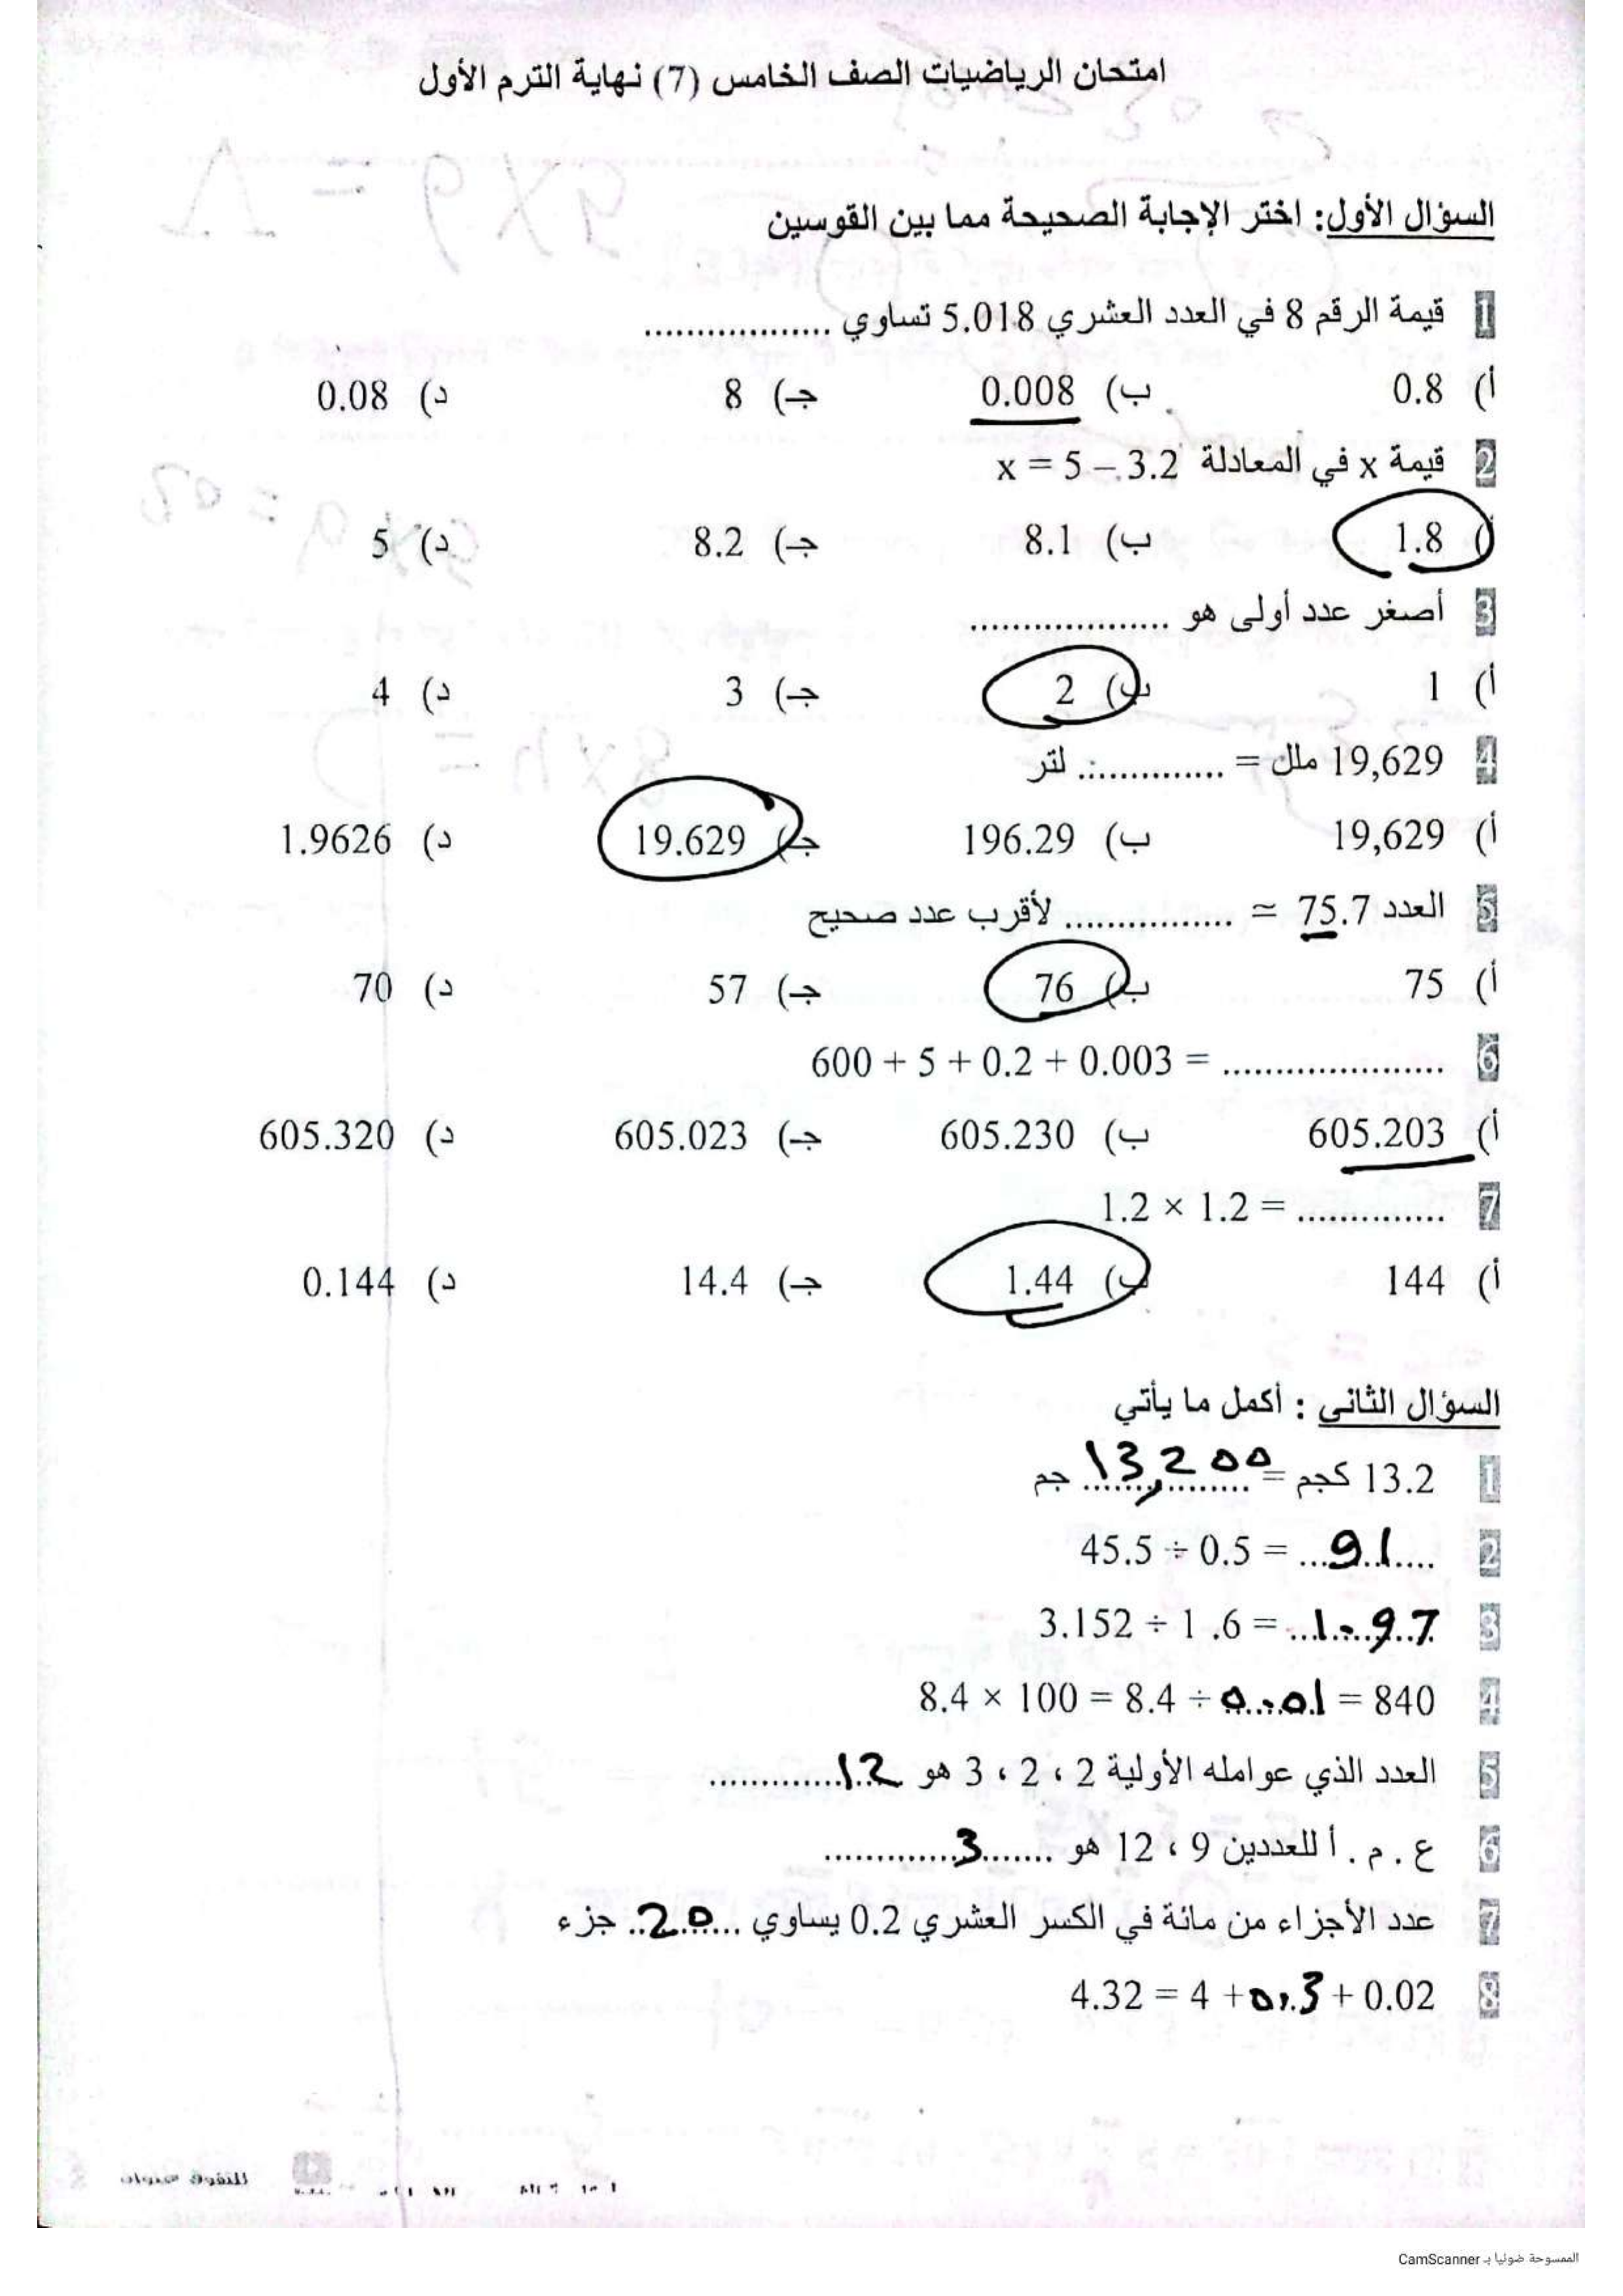 امتحان الرياضيات الصف الخامس (7) نهاية الترم الأول
السؤال الأول: اختر الإجابة الصحيحة مما بين القوسين
1 قيمة الرقم 8 في العدد العشري 5.018 تساوي ..................
أ) 0.8 ب) 0.008 جـ) 8 د) 0.08
2 قيمة x في المعادلة x = 5 – 3.2
أ) 1.8 ب) 8.1 جـ) 8.2 د) 5
3 أصغر عدد أولى هو ...................
أ) 1 ب) 2 جـ) 3 د) 4
4 19,629 ملل = .............. لتر
أ) 19,629 ب) 196.29 جـ) 19.629 د) 1.9626
5 العدد 75.7 ≃ ................ لأقرب عدد صحيح
أ) 75 ب) 76 جـ) 57 د) 70
6 600 + 5 + 0.2 + 0.003 = .....................
أ) 605.203 ب) 605.230 جـ) 605.023 د) 605.320
7 1.2 × 1.2 = ..............
أ) 144 ب) 1.44 جـ) 14.4 د) 0.144
السؤال الثانى : أكمل ما يأتي
1 13.2 كجم = 13,200 جم
2 45.5 ÷ 0.5 = ...91....
3 3.152 ÷ 1 .6 = ...1.97
4 8.4 × 100 = 8.4 ÷ 0.01 = 840
5 العدد الذي عوامله الأولية 2 ، 2 ، 3 هو 12.............
6 ع . م . أ للعددين 9 ، 12 هو .......3.............
7 عدد الأجزاء من مائة في الكسر العشري 0.2 يساوي ....20.. جزء
8 4.32 = 4 + 0.3 + 0.02
الممسوحة ضوئيا بـ CamScanner